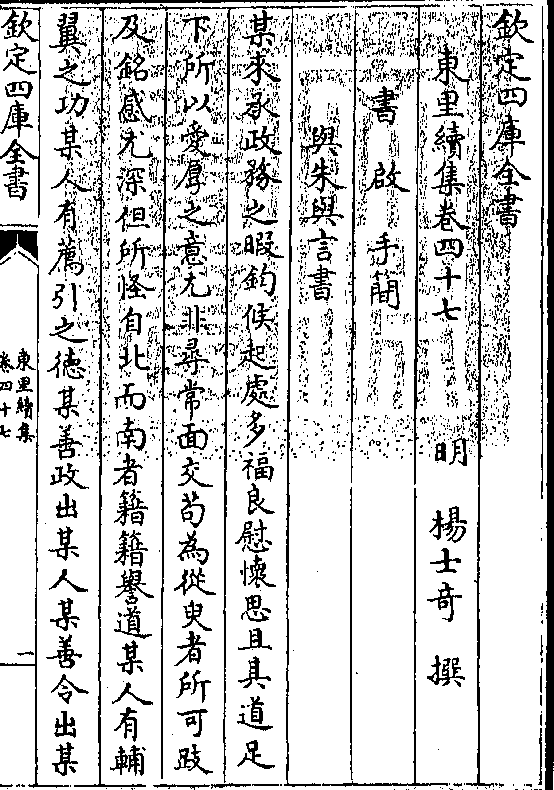 欽定四庫全書
東里續集卷四十七
明 楊士奇 撰
書啟 手簡
與朱與言書
某來承政務之暇鈞候起處多福良慰懷思且具道足
下所以愛厚之意尤非尋常面交茍為從臾者所可跂
及銘感尤深但所怪自北而南者籍籍譽道某人有輔
翼之功某人有薦引之德某善政出某人某善令出某
欽定四庫全書
東里續集
卷四十七
一